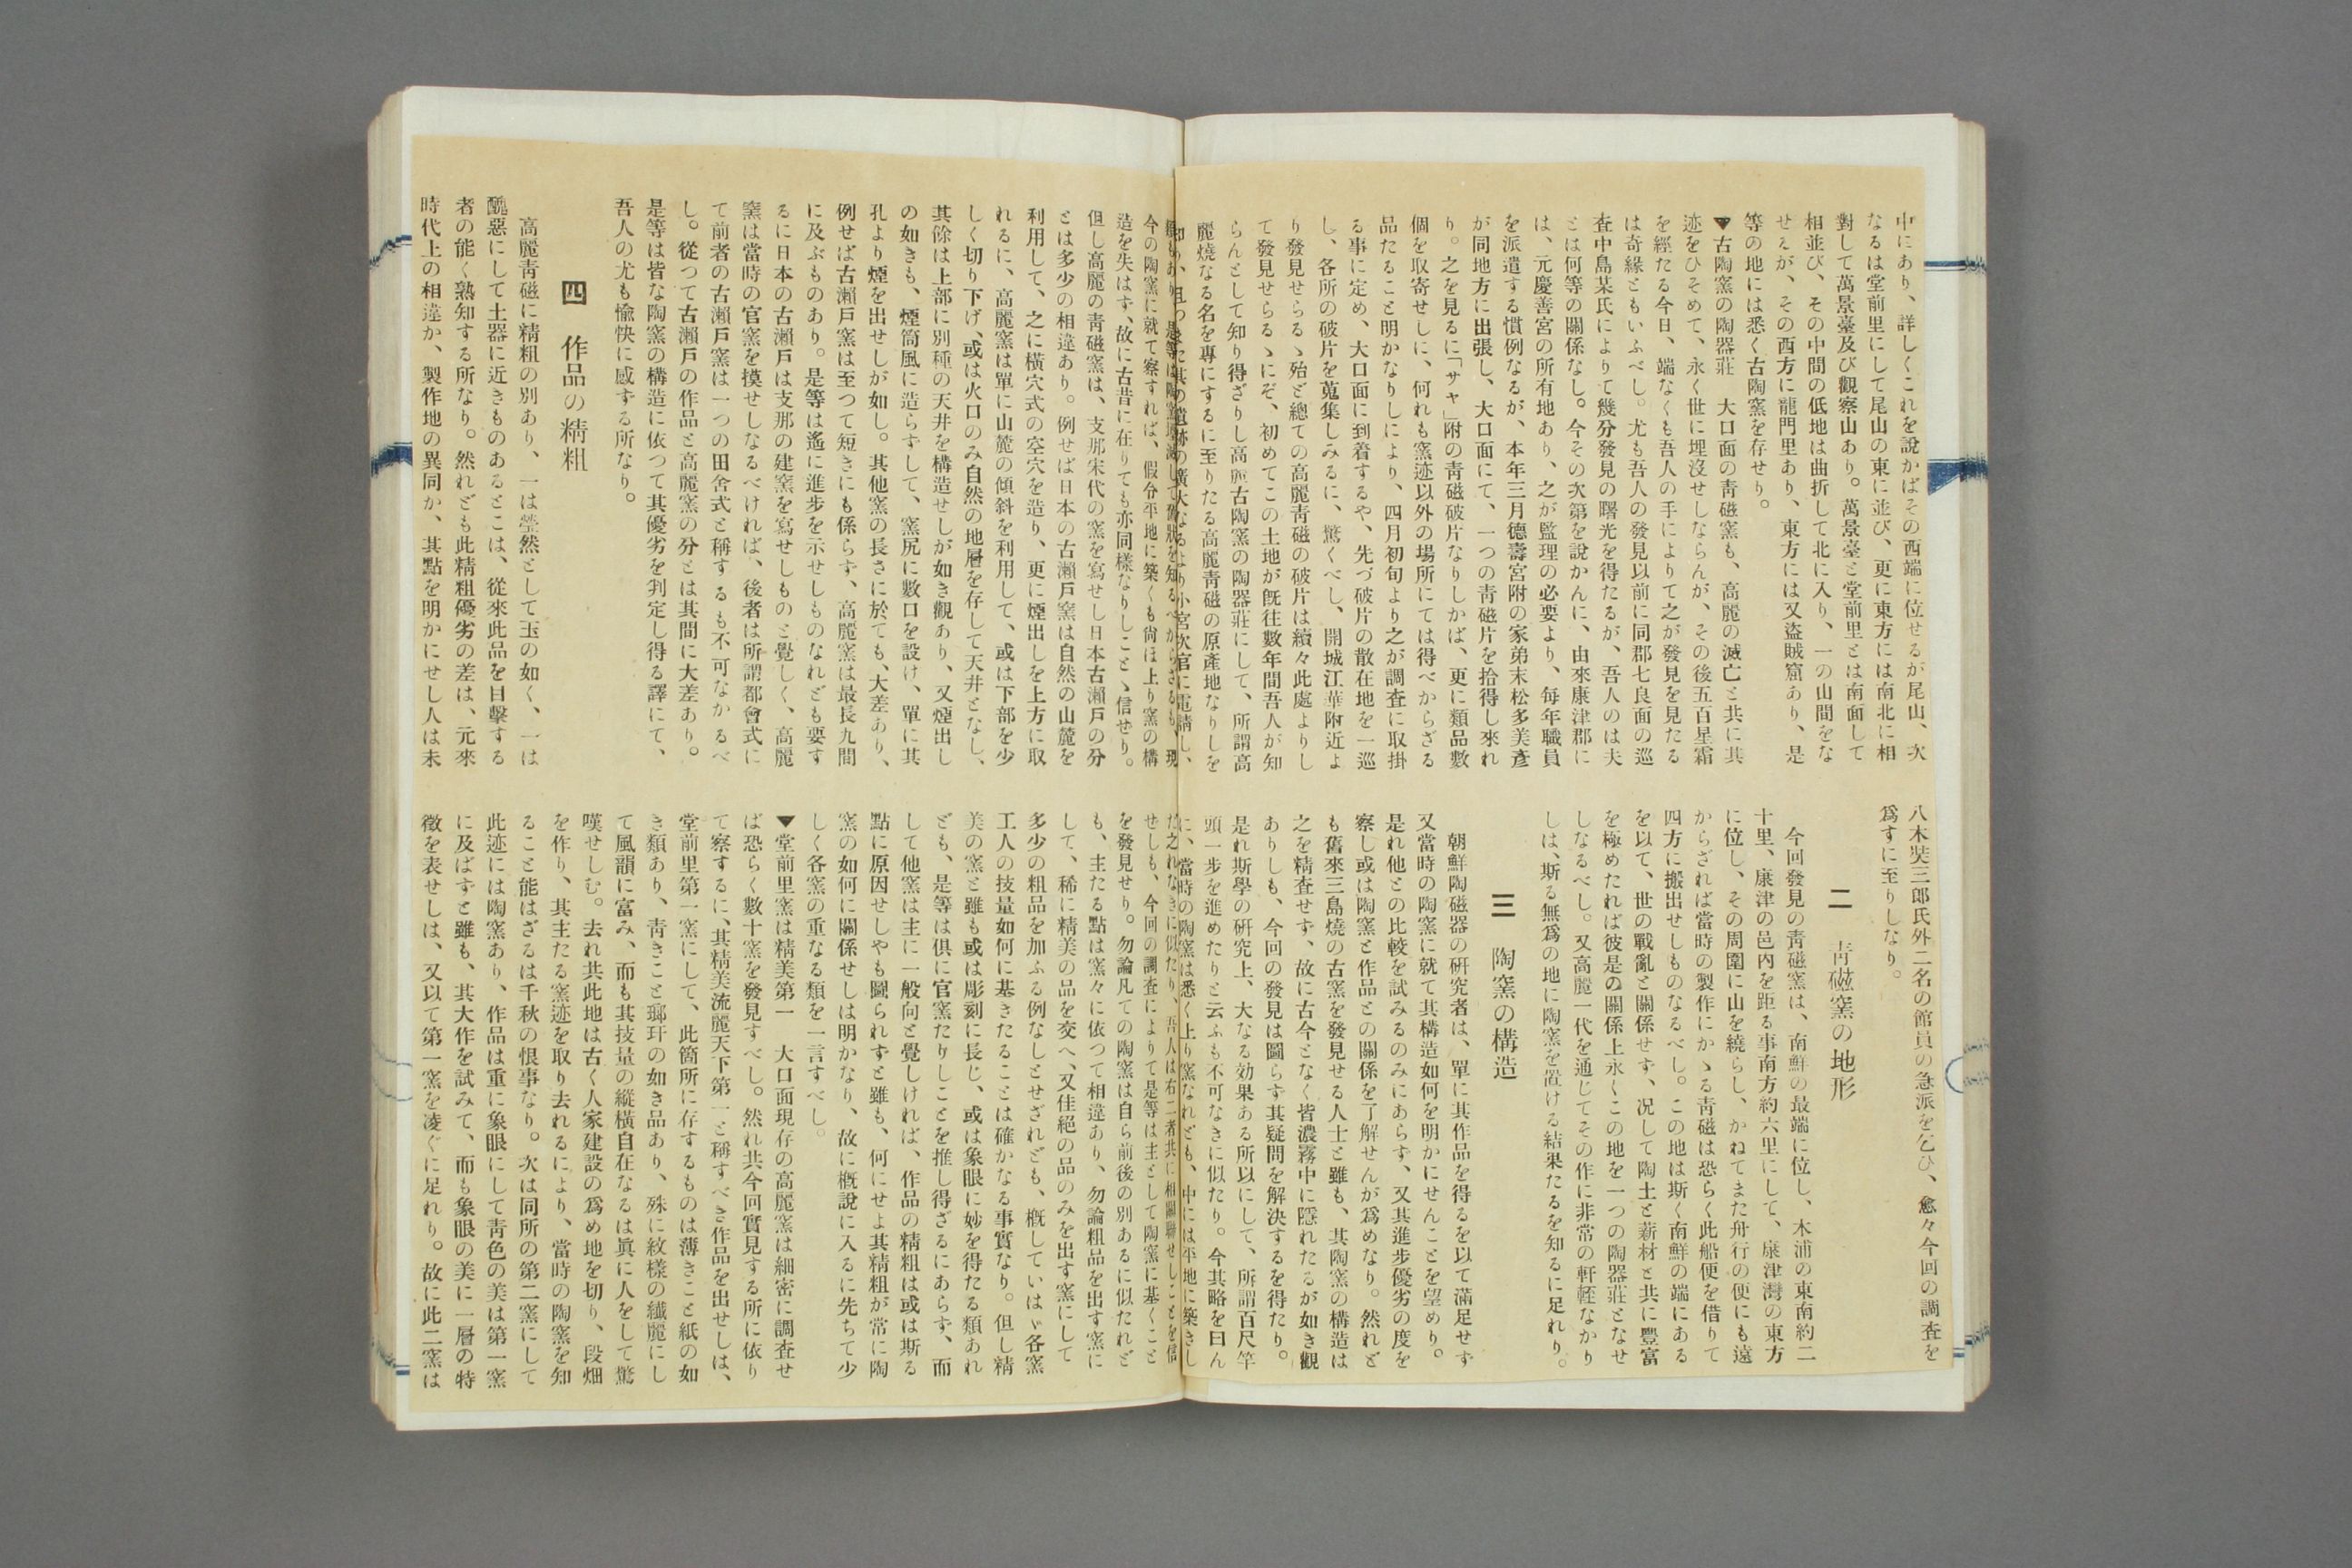 中にあり、詳しくこれを說かばその西端に位せるが尾山、次
なるは堂前里にして尾山の東に並び、更に東方には南北に相
對して萬景臺及び觀察山あり。萬景臺と堂前里とは南面して
相並び、その中間の低地は曲折して北に入り、一の山間をな
せるが、その西方に龍門里あり、東方には又盜賊窟あり、是
等の地には悉く古陶窯を存せり。
▼古陶窯の陶器莊　大口面の靑磁窯も、高麗の滅亡と共に其
迹をひそめて、永く世に埋沒せしならんが、その後五百星霜
を經たる今日、端なくも吾人の手によりて之が發見を見たる
は奇緣ともいふべし。尤も吾人の發見以前に同郡七良面の巡
査中島某氏によりて幾分發見の曙光を得たるが、吾人のは夫
とは何等の關係なし。今その次第を說かんに、由來康津郡に
は、元慶善宮の所有地あり、之が監理の必要より、每年職員
を派遣する慣例なるが、本年三月德壽宮附の家弟末松多美彥
が同地方に出張し、大口面にて、一つの靑磁片を拾得し來れ
り。之を見るに「サヤ」附の靑磁破片なりしかば、更に類品數
個を取寄せしに、何れも窯迹以外の場所にては得べからざる
品たること明かなりしにより、四月初旬より之が調査に取掛
る事に定め、大口面に到着するや、先づ破片の散在地を一巡
し、各所の破片を蒐集しみるに、驚くべし、開城江華附近よ
り發見せらるゝ殆ど總ての高麗靑磁の破片は續々此處よりし
て發見せらるゝにぞ、初めてこの土地が旣往數年間吾人が知
らんとして知り得ざりし高麗古陶窯の陶器莊にして、所謂高
麗燒なる名を專にするに至りたる高麗靑磁の原產地なりしを
知り、且つまた其の遺跡の廣大なるより小宮次官に電請し、
八木奘三郎氏外二名の館員の急派を乞ひ、愈々今回の調査を
爲すに至りしなり。
二　靑磁窯の地形
今回發見の靑磁窯は、南鮮の最端に位し、木浦の東南約二
十里、康津の邑內を距る事南方約六里にして、康津灣の東方
に位し、その周圍に山を繞らし、かねてまた舟行の便にも遠
からざれば當時の製作にかゝる靑磁は恐らく此船便を借りて
四方に搬出せしものなるべし。この地は斯く南鮮の端にある
を以て、世の戰亂と關係せず、况して陶土と薪材と共に豐富
を極めたれば彼是の關係上永くこの地を一つの陶器莊となせ
しなるべし。又高麗一代を通じてその作に非常の軒輊なかり
しは、斯る無爲の地に陶窯を置ける結果たるを知るに足れり。
三　陶窯の構造
朝鮮陶磁器の硏究者は、單に其作品を得るを以て滿足せず
又當時の陶窯に就て其構造如何を明かにせんことを望めり。
是れ他との比較を試みるのみにあらず、又其進步優劣の度を
察し或は陶窯と作品との關係を了解せんが爲めなり。然れど
も舊來三島燒の古窯を發見せる人士と雖も、其陶窯の構造は
之を精査せず、故に古今となく皆濃霧中に隱れたるが如き觀
ありしも、今回の發見は圖らず其疑問を解決するを得たり。
是れ斯學の硏究上、大なる効果ある所以にして、所謂百尺竿
頭一步を進めたりと云ふも不可なきに似たり。今其略を曰ん
に、當時の陶窯は悉く上り窯なれども、中には平地に築きし
類もあり、是等は陶窯壞滅して舊狀を知るべからざるも、現
今の陶窯に就て察すれば、假令平地に築くも尙ほ上り窯の構
造を失はず、故に古昔に在りても亦同樣なりしことゝ信せり。
但し高麗の靑磁窯は、支那宋代の窯を寫せし日本古瀨戶の分
とは多少の相違あり。例せば日本の古瀨戶窯は自然の山麓を
利用して、之に橫穴式の空穴を造り、更に煙出しを上方に取
れるに、高麗窯は單に山麓の傾斜を利用して、或は下部を少
しく切り下げ、或は火口のみ自然の地層を存して天井となし、
其餘は上部に別種の天井を構造せしが如き觀あり、又煙出し
の如きも、煙筒風に造らずして、窯尻に數口を設け、單に其
孔より煙を出せしが如し。其他窯の長さに於ても、大差あり、
例せば古瀨戶窯は至つて短きにも係らず、高麗窯は最長九間
に及ぶものあり。是等は遙に進步を示せしものなれども要す
るに日本の古瀨戶は支那の建窯を寫せしものと覺しく、高麗
窯は當時の官窯を摸せしなるべければ、後者は所謂都會式に
て前者の古瀨戶窯は一つの田舍式と稱するも不可なかるべ
し。從つて古瀨戶の作品と高麗窯の分とは其間に大差あり。
是等は皆な陶窯の構造に依つて其優劣を判定し得る譯にて、
吾人の尤も愉快に感ずる所なり。
四　作品の精粗
高麗靑磁に精粗の別あり、一は瑩然として玉の如く、一は
醜惡にして土器に近きものあるとこは、從來此品を目擊する
者の能く熟知する所なり。然れども此精粗優劣の差は、元來
時代上の相違か、製作地の異同か、其點を明かにせし人は未
だ之れなきに似たり、吾人は右二者共に相關聯せしことを信
せしも、今回の調査によりて是等は主として陶窯に基くこと
を發見せり。勿論凡ての陶窯は自ら前後の別あるに似たれど
も、主たる點は窯々に依つて相違あり、勿論粗品を出す窯に
して、稀に精美の品を交へ、又佳絕の品のみを出す窯にして
多少の粗品を加ふる例なしとせざれども、槪していはゞ各窯
工人の技量如何に基きたることは確かなる事實なり。但し精
美の窯と雖も或は彫刻に長じ、或は象眼に妙を得たる類あれ
ども、是等は俱に官窯たりしことを推し得ざるにあらず、而
して他窯は主に一般向と覺しければ、作品の精粗は或は斯る
點に原因せしやも圖られずと雖も、何にせよ其精粗が常に陶
窯の如何に關係せしは明かなり、故に槪說に入るに先ちて少
しく各窯の重なる類を一言すべし。
▼堂前里窯は精美第一　大口面現存の高麗窯は細密に調査せ
ば恐らく數十窯を發見すべし。然れ共今回實見する所に依り
て察するに、其精美流麗天下第一と稱すべき作品を出せしは、
堂前里第一窯にして、此箇所に存するものは薄きこと紙の如
き類あり、靑きこと瑯玕の如き品あり、殊に紋樣の纖麗にし
て風韻に富み、而も其技量の縱橫自在なるは眞に人をして驚
嘆せしむ。去れ共此地は古く人家建設の爲め地を切り、段畑
を作り、其主たる窯迹を取り去れるにより、當時の陶窯を知
ること能はざるは千秋の恨事なり。次は同所の第二窯にして
此迹には陶窯あり、作品は重に象眼にして靑色の美は第一窯
に及ばずと雖も、其大作を試みて、而も象眼の美に一層の特
徵を表せしは、又以て第一窯を凌ぐに足れり。故に此二窯は